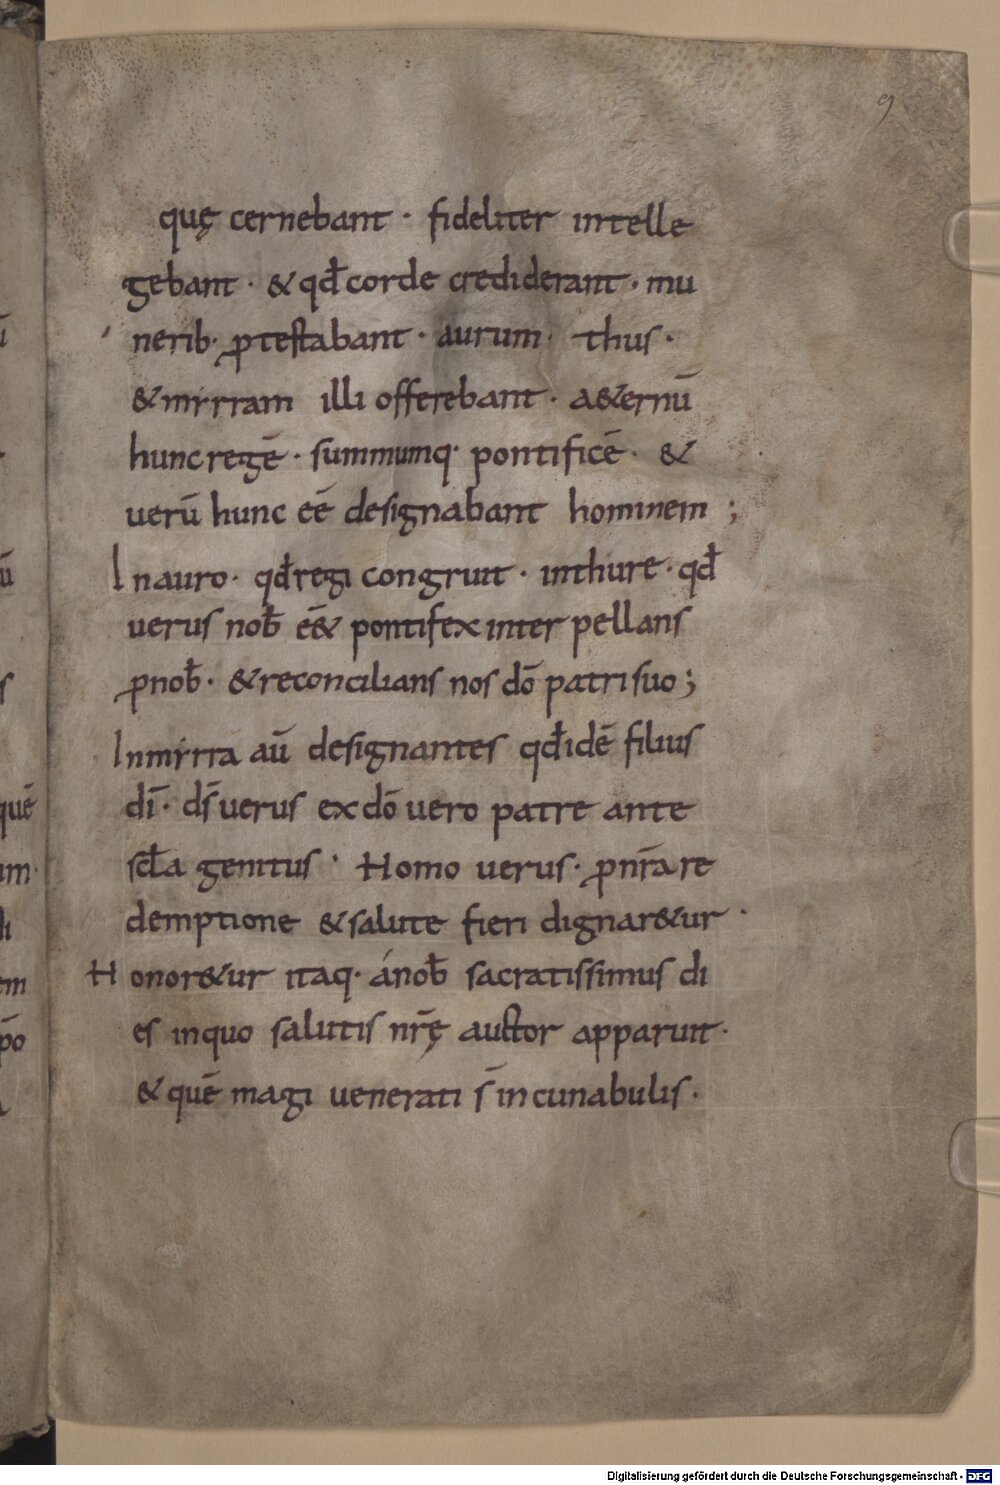 9
quę cernebant · fideliter intelle
gebant · & qđ corde crediderant · mu
nerib· ꝓtestabant · aurum · thus ·
& mirram illi offerebant · a&ernū
hunc regē · summumq· pontificē · &
uerū hunc eē designabant hominem ;
In auro · qđ regi congruit · in thure · qđ
uerus nob̄ ē& pontifex inter pellans
ꝓ nob̄ · & reconcilians nos dō patri suo ;
In mirra aū designantes qđ idē filius
dī · ds̄ uerus ex dō uero patre ante
scła genitus · Homo uerus · ꝓ nr̄a re
demptione & salute fieri dignar&ur ·
Honor&ur itaq· a nob̄ sacratissimus di
es in quo salutis nr̄ę auctor apparuit ·
& quē magi uenerati s̄ in cunabulis ·
Digitalisierung gefördert durch die Deutsche Forschungsgemeinschaft - DFG